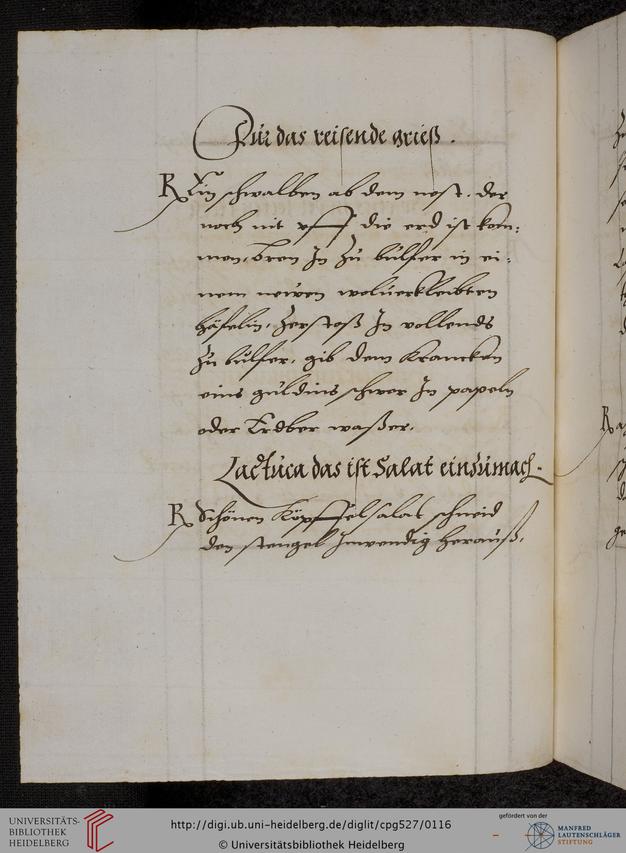 Für das reisende grieß.
R Ein schwalben ab dem nest, der
noch nit vff die erd ist kom:
men, bren In zu bulfer in ei:
nem newen woluerkleibten
häfelin, zerstoß In vollends
zu bulfer, gib dem krancken
eins guldins schwer In papeln
oder Erdber waßer.
Lactuca das ist Salat einzumach.
R Schönen köpffel salat schneid
den stengel Inwendig herauß,
UNIVERSITÄTS-
BIBLIOTHEK
HEIDELBERG
http://digi.ub.uni-heidelberg.de/diglit/cpg527/0116
© Universitätsbibliothek Heidelberg
gefördert von der
MANFRED
LAUTENSCHLÄGER
STIFTUNG